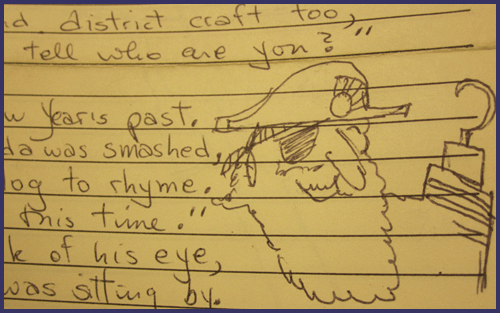 district craft too,
tell who are you?"
year's past.
was smashed,
to rhyme.
this time."
of his eye,
was sitting by.